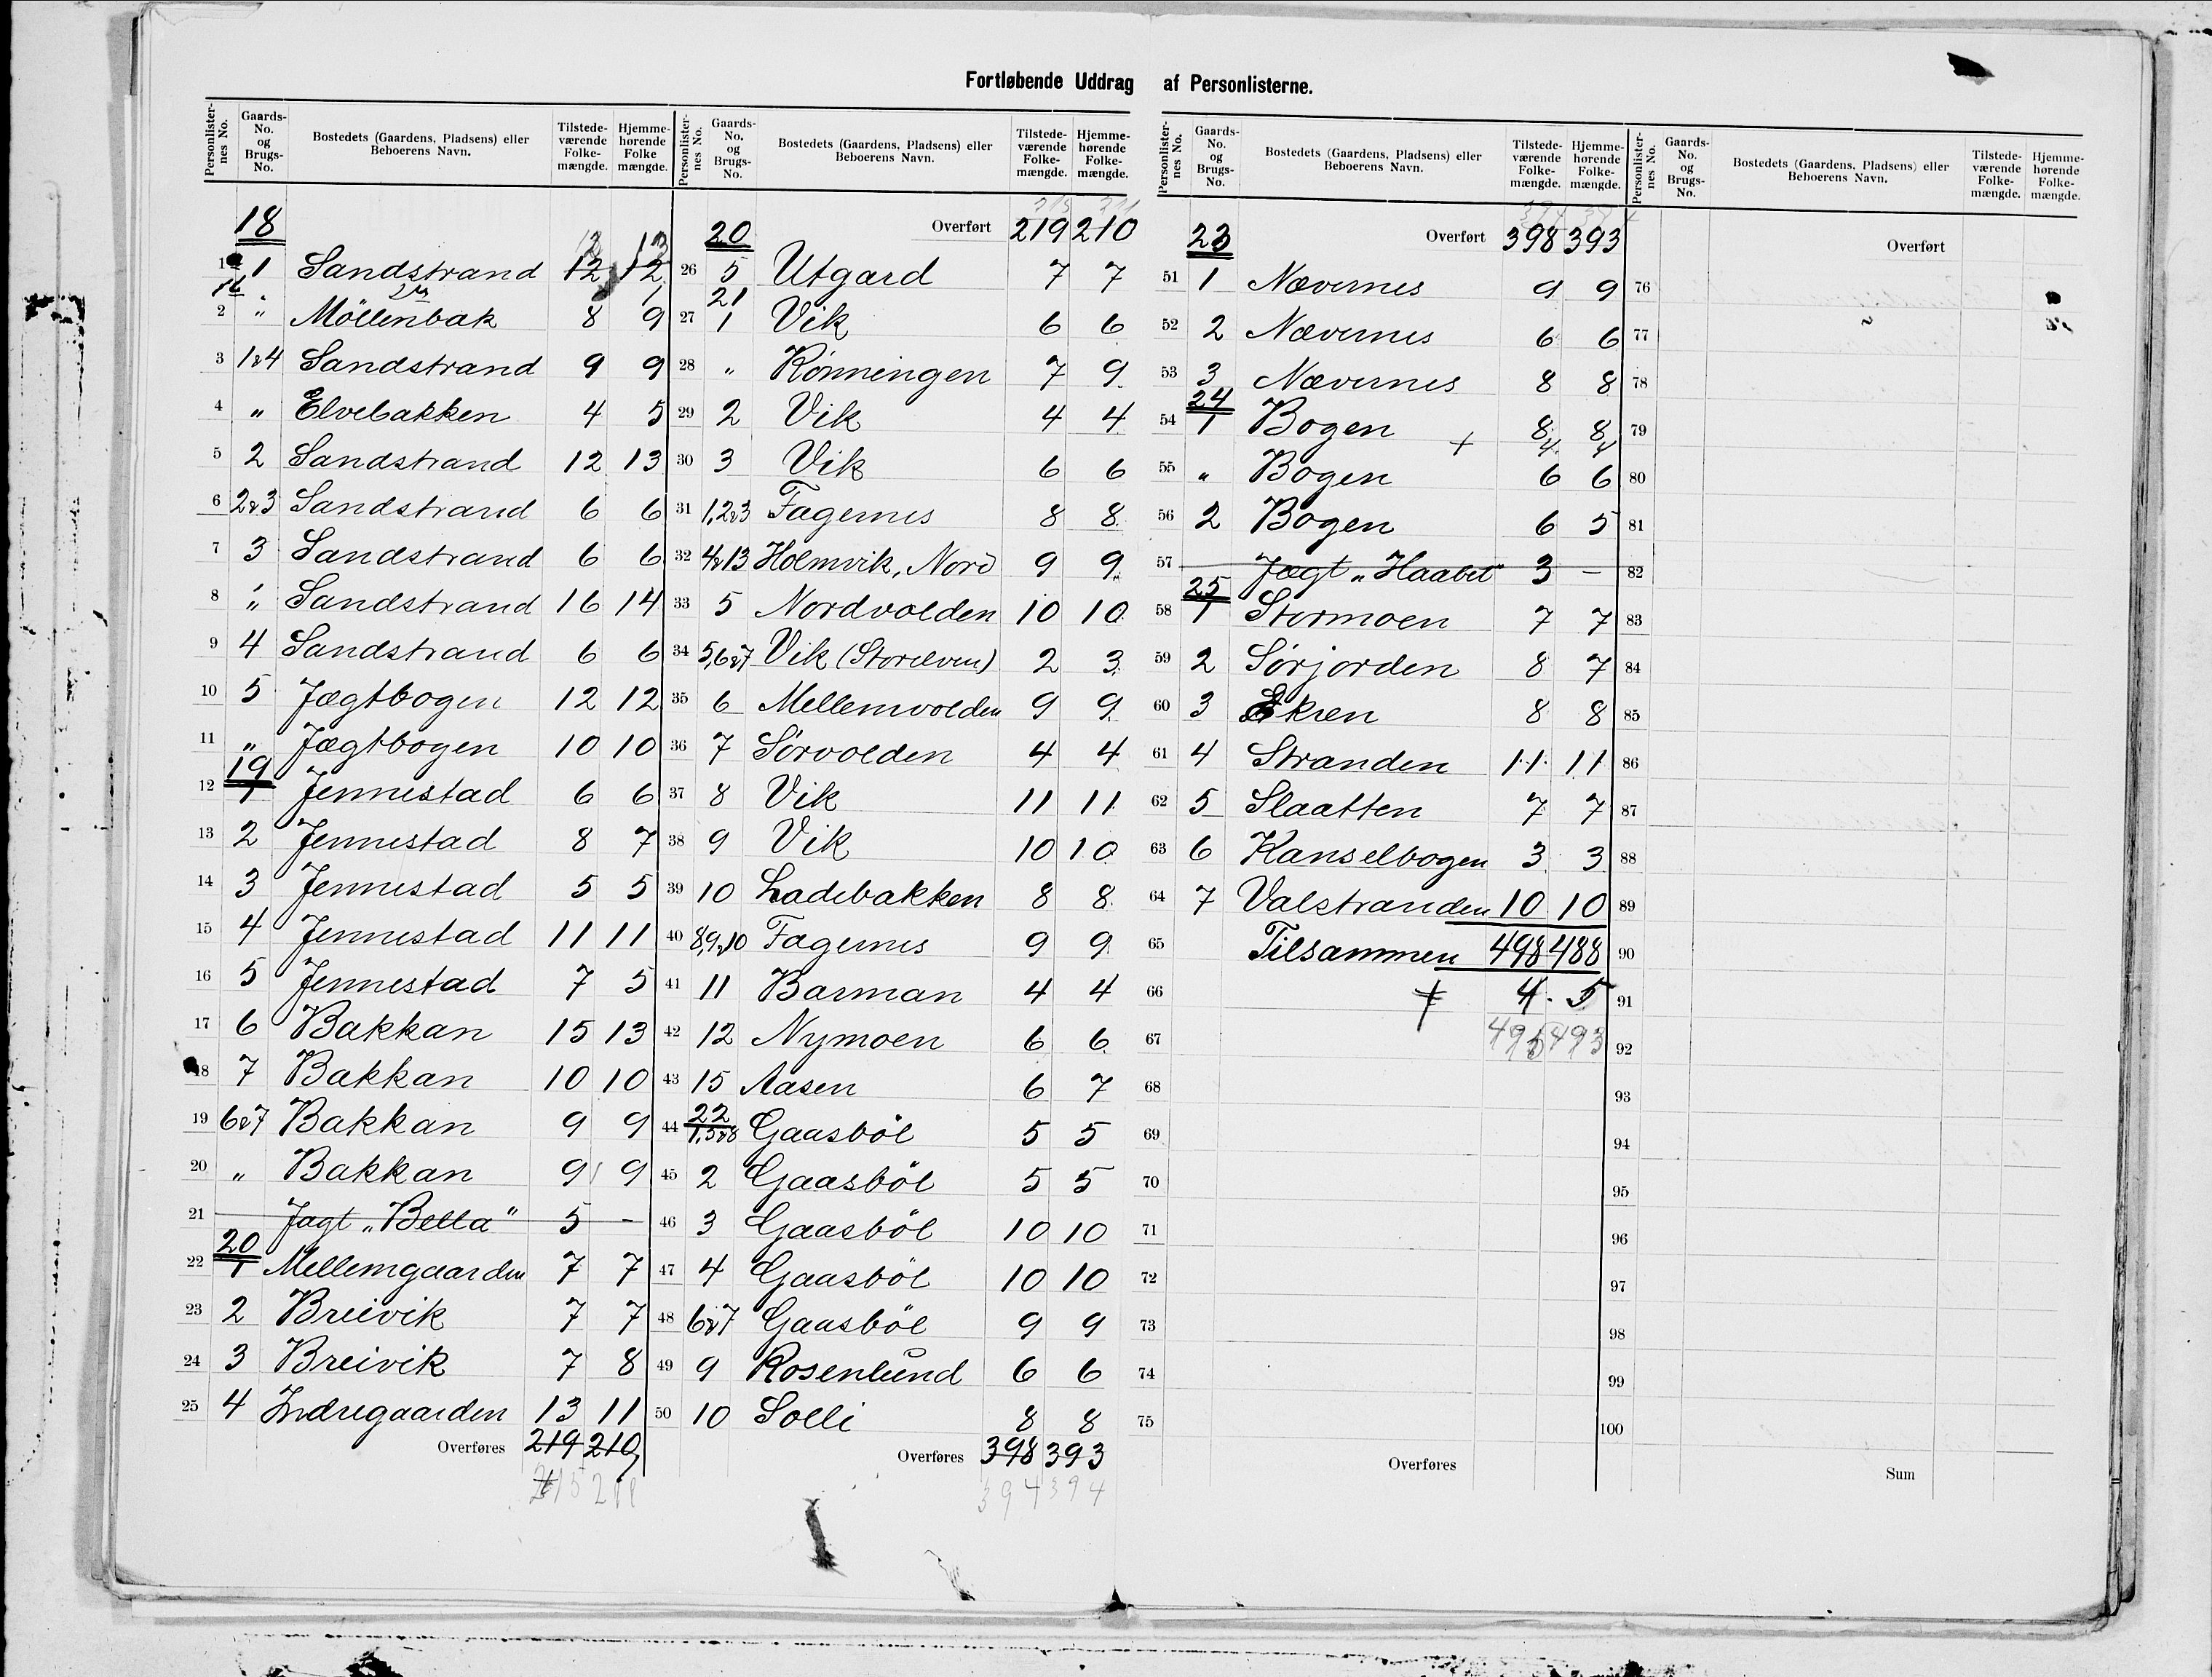 Fortløbende Uddrag af Personlisterne.
Personlisternes No. Gaards-No. og Brugs-No. Bostedets (Gaardens, Pladsens) eller Beboerens Navn. Tilstedeværende Folkemængde. Hjemmehørende Folkemængde.
18
1 1 Sandstrand 12 12
2 " Möllenbak 8 9
3 1&4 Sandstrand 9 9
4 " Elvebakken 4 5
5 2 Sandstrand 12 13
6 2&3 Sandstrand 6 6
7 3 Sandstrand 6 6
8 " Sandstrand 16 14
9 4 Sandstrand 6 6
10 5 Jægtbogen 12 12
11 " Jægtbogen 10 10
19
12 1 Jennestad 6 6
13 2 Jennestad 8 7
14 3 Jennestad 5 5
15 4 Jennestad 11 11
16 5 Jennestad 7 5
17 6 Bakkan 15 13
18 7 Bakkan 10 10
19 6&7 Bakkan 9 9
20 " Bakkan 9 9
21 Jagt „Bella" 5 -
20
22 1 Mellemgaarden 7 7
23 2 Breivik 7 7
24 3 Breivik 7 8
25 4 Indregaarden 13 11
Overføres 219 210
Personlisternes No. Gaards-No. og Brugs-No. Bostedets (Gaardens, Pladsens) eller Beboerens Navn. Tilstedeværende Folkemængde. Hjemmehørende Folkemængde.
20 Overført 219 210
26 5 Utgard 7 7
21
27 1 Vik 6 6
28 " Rönningen 7 9
29 2 Vik 4 4
30 3 Vik 6 6
31 1,2&3 Fagernes 8 8
32 4&13 Holmvik, Nord 9 9
33 5 Nordvolden 10 10
34 5,6&7 Vik (Storelven) 2 3
35 6 Mellemvolden 9 9
36 7 Sörvolden 4 4
37 8 Vik 11 11
38 9 Vik 10 10
39 10 Ladebakken 8 8
40 8,9&10 Fagernes 9 9
41 11 Barman 4 4
42 12 Nymoen 6 6
43 15 Aasen 6 7
22
44 1,5&8 Gaasböl 5 5
45 2 Gaasböl 5 5
46 3 Gaasböl 10 10
47 4 Gaasböl 10 10
48 6&7 Gaasböl 9 9
49 9 Rosenlund 6 6
50 10 Solli 8 8
Overføres 398 393
394 394
Personlisternes No. Gaards-No. og Brugs-No. Bostedets (Gaardens, Pladsens) eller Beboerens Navn. Tilstedeværende Folkemængde. Hjemmehørende Folkemængde.
23 Overført 398 393
51 1 Nævernes 9 9
52 2 Nævernes 6 6
53 3 Nævernes 8 8
24
54 1 Bogen 8 8
+ 4 4
55 " Bogen 6 6
56 2 Bogen 6 5
57 Jægt „Haabet" 3 -
25
58 1 Stormoen 7 7
59 2 Sörjorden 8 7
60 3 Ekren 8 8
61 4 Stranden 11 11
62 5 Slaatten 7 7
63 6 Kanselbogen 3 3
64 7 Valstranden 10 10
65 Tilsammen 498 488
66 + 4 5
67 495 493
68
69
70
71
72
73
74
75
Overføres
Personlisternes No. Gaards-No. og Brugs-No. Bostedets (Gaardens, Pladsens) eller Beboerens Navn. Tilstedeværende Folkemængde. Hjemmehørende Folkemængde.
Overført
76
77
78
79
80
81
82
83
84
85
86
87
88
89
90
91
92
93
94
95
96
97
98
99
100
Sum